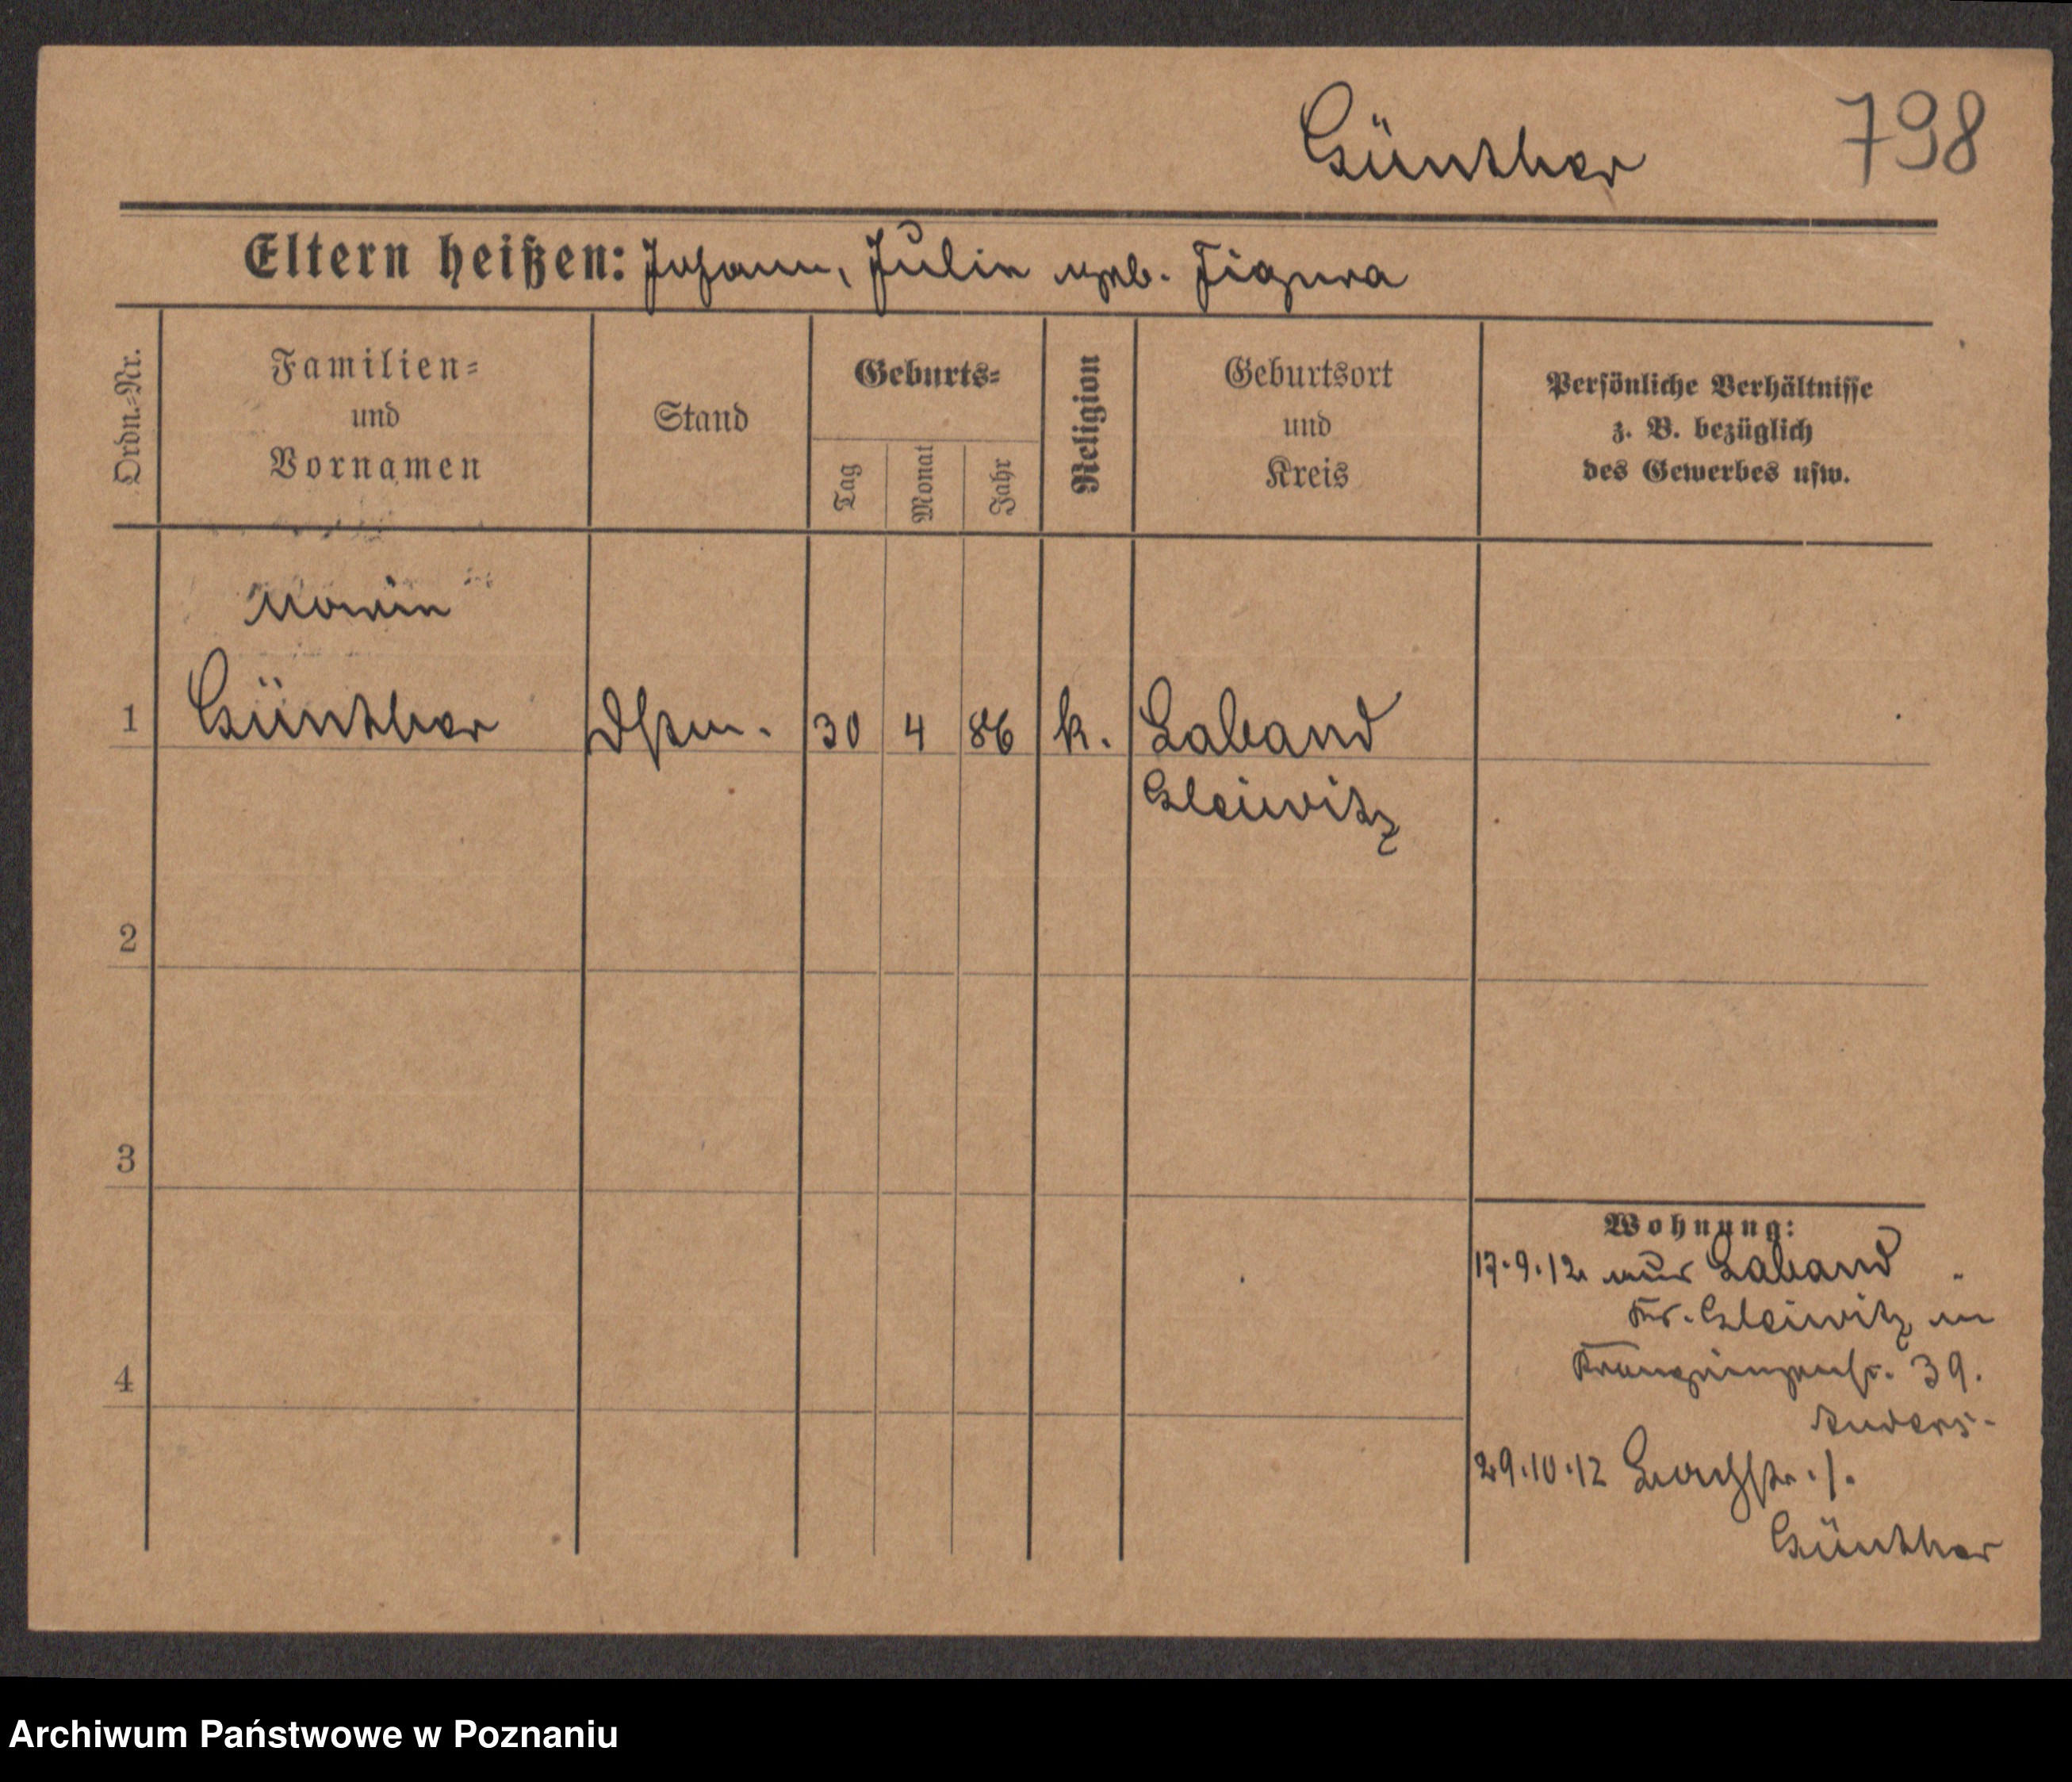 Günther 798
Eltern heißen: Johann, Julie geb. Figura
Ordn.=Nr.
Familien=
und
Vornamen
Stand
Geburts=
Tag
Monat
Jahr
Religion
Geburtsort
und
Kreis
Persönliche Verhältnisse
z. B. bezüglich
des Gewerbes usw.
1 Günther 30 4 86 k. Laband
Gleiwitz
2
3
4
Wohnung:
17.9.12 aus Laband
Kr. Gleiwitz in
39.
Anders.
29.10.12
Günther
Archiwum Państwowe w Poznaniu